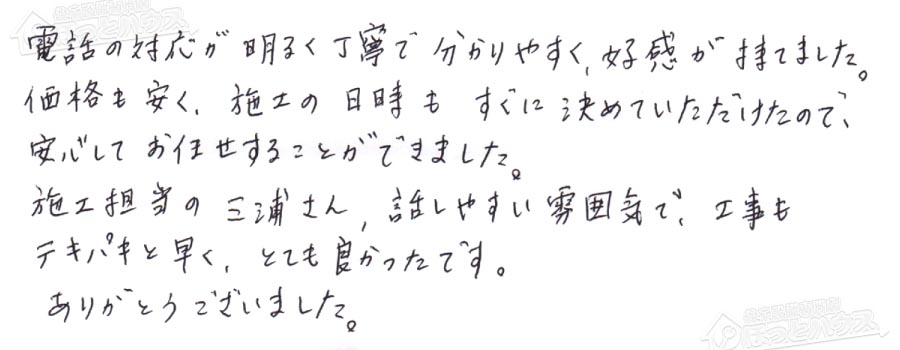 電話の対応が明るく丁寧で分かりやすく、好感が持てました。
価格も安く、施工の日時もすぐに決めていただけたので、
安心してお任せすることができました。
施工担当の三浦さん、話しやすい雰囲気で、工事も
テキパキと早く、とても良かったです。
ありがとうございました。
ほっとハウス
ほっとハウス